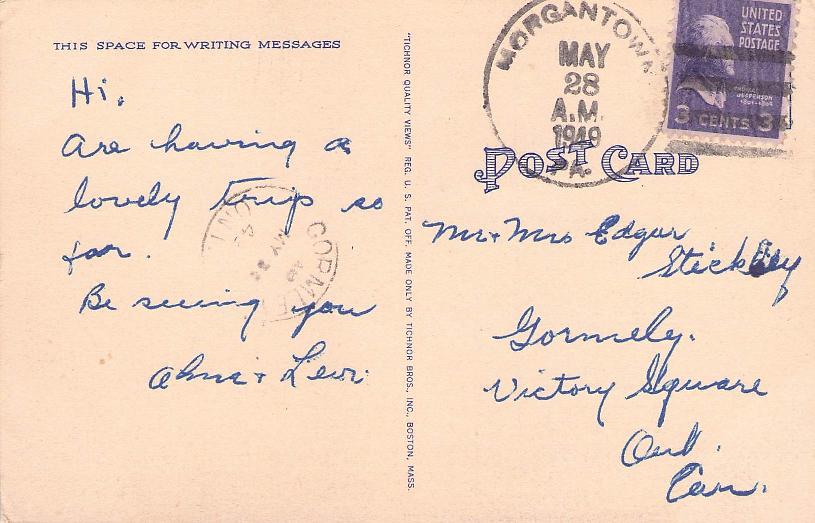 THIS SPACE FOR WRITING MESSAGES
Hi,
Are having a
lovely trip so
far.
Be seeing you
Alma + Levi
"TICHNOR QUALITY VIEWS" REG. U. S. PAT. OFF. MADE ONLY BY TICHNOR BROS., INC., BOSTON, MASS.
MORGANTOWN
MAY
28
A.M.
1949
PA.
UNITED
STATES
POSTAGE
THOMAS
JEFFERSON
1801-1809
3 CENTS 3
POST CARD
Mr + Mrs Edgar
Stickley
Gormely.
Victory Square
Ont.
Can.
GORMLEY
ONT